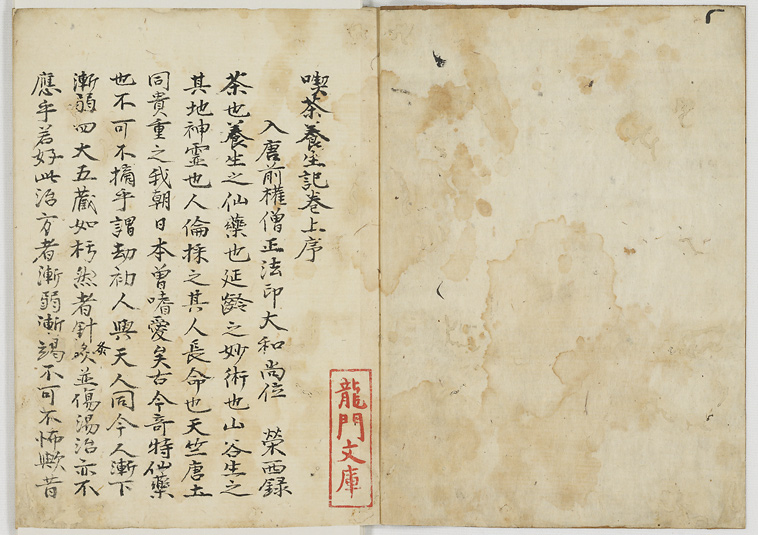 喫茶養生記巻上序
入唐前権僧正法印大和尚位 榮西録
茶也養生之仙藥也延齡之妙術也山谷生之
其地神霊也人倫採之其人長命也天竺唐土
同貴重之我朝日本曾嗜愛矣古今奇特仙藥
也不可不摘乎謂劫初人與天人同今人漸下
漸弱四大五蔵如朽然者針灸並傷湯治亦不
應乎若好此治方者漸弱漸竭不可不怖歟昔
龍門文庫